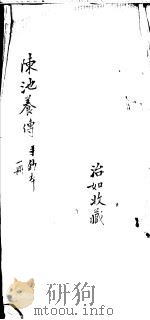 陳池養傳 手鈔本
一冊
治如收藏